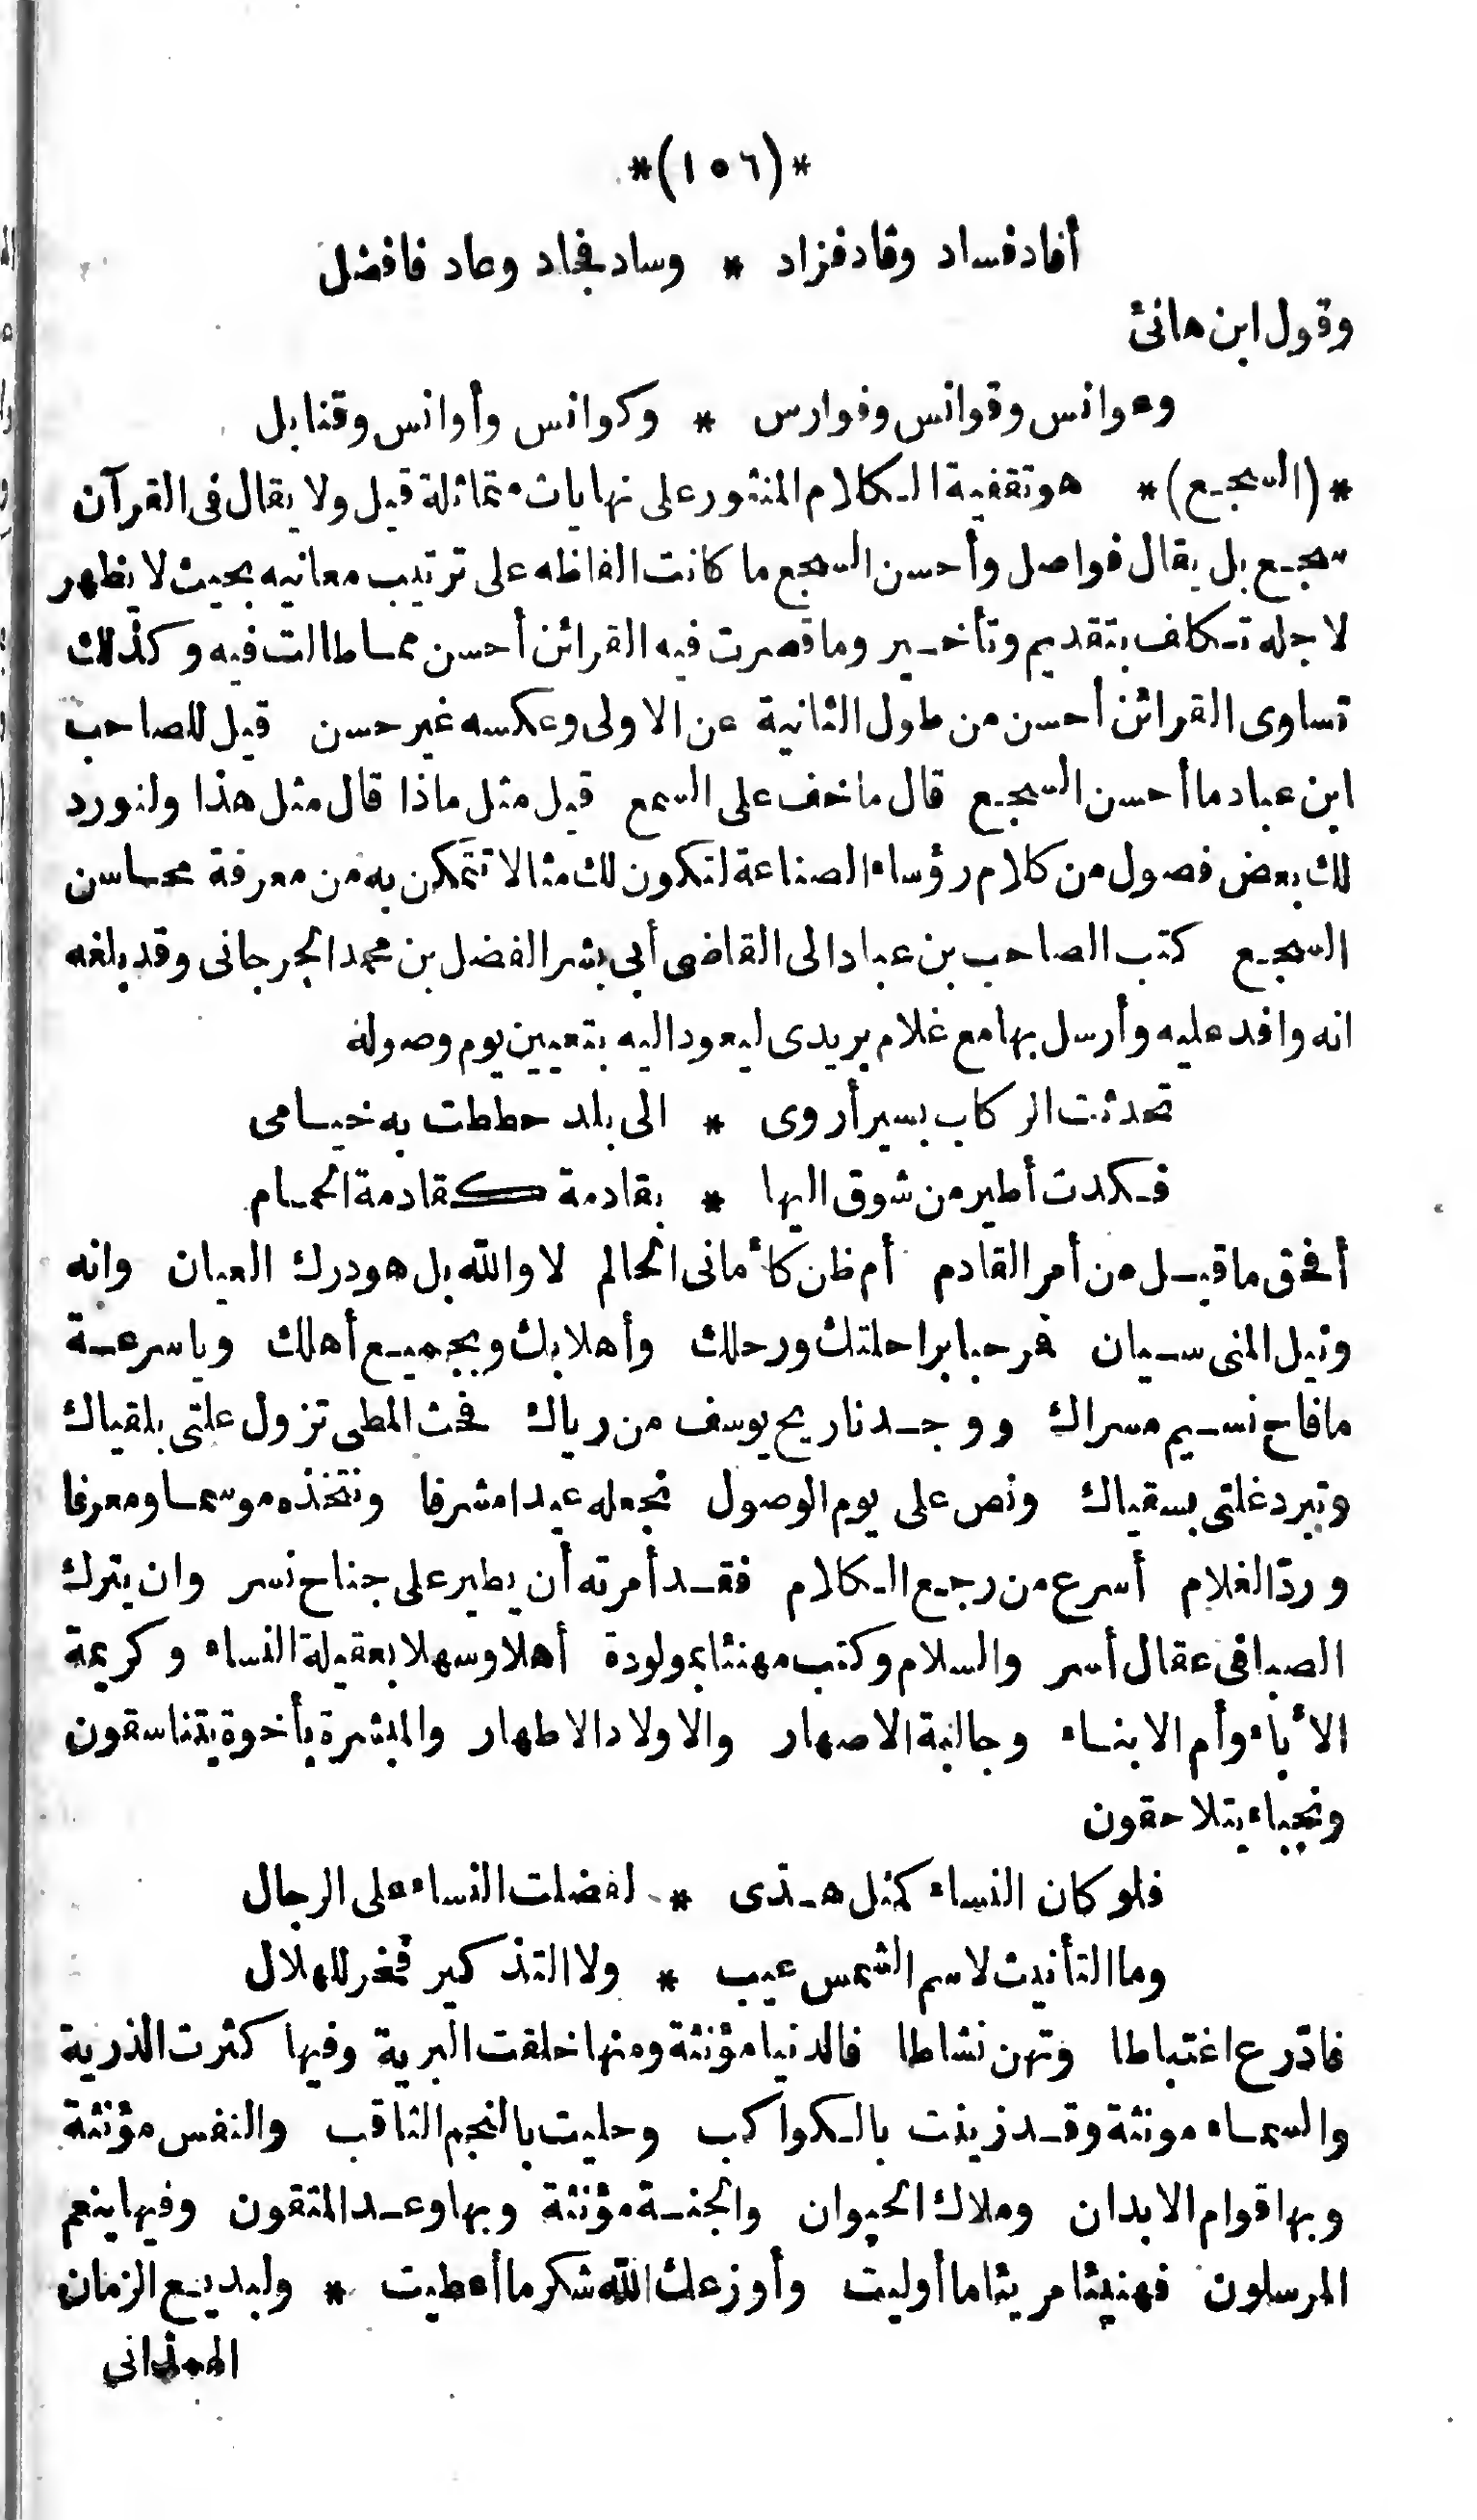 *(١٥٦)*
أفاد فساد وقاد فزاد * وساد فجاد وعاد فافضل
وقول ابن هانئ
وعوانس وقوانس وفوارس * وكوانس وأوانس وقنابل
*(السجع)* هو تقفية الكلام المنثور على نهايات متماثلة قيل ولا يقال فى القرآن
سجع بل يقال فواصل وأحسن السجع ما كانت الفاظه على ترتيب معانيه بحيث لا يظهر
لاجله تكلف بتقديم وتأخير وما قصرت فيه القرائن أحسن مما طالت فيه وكذلك
تساوى القرائن أحسن من طول الثانية عن الاولى وعكسه غير حسن قيل للصاحب
ابن عباد ما أحسن السجع قال ما خف على السمع قيل مثل ماذا قال مثل هذا ولنورد
لك بعض فصول من كلام رؤساء الصناعة لتكون لك مثالا تتمكن به من معرفة محاسن
السجع كتب الصاحب بن عباد الى القاضى أبى بشر الفضل بن محمد الجرجانى وقد بلغه
انه وافد عليه وأرسل بها مع غلام بريدى ليعود اليه بتعيين يوم وصوله
تحدثت الركاب بسير أروى * الى بلد حططت به خيامى
فكدت أطير من شوق اليها * بقادمة كقادمة الحمام
أفحق ما قيل من أمر القادم أم ظن كأمانى الحالم لا والله بل هو درك العيان وانه
ونيل المنى سيان فرحبا براحلتك ورحلك وأهلا بك وبجميع أهلك ويا سرعة
ما فاح نسيم مسراك ووجدنا ريح يوسف من رياك فحث المطى تزول علتى بلقياك
وتبرد غلتى بسقياك ونص على يوم الوصول نجعله عيدا مشرفا ونتخذه موسما ومعرفا
وردّ الغلام أسرع من رجيع الكلام فقد أمرته أن يطير على جناح نسر وان يترك
الصبا فى عقال أسر والسلام وكتب مهنئا بمولودة أهلا وسهلا بعقيلة النساء وكريمة
الأباء وأم الابناء وجالبة الاصهار والاولاد الاطهار والمبشرة بأخوة يتناسقون
ونجباء يتلاحقون
فلو كان النساء كمثل هذى * لفضلت النساء على الرجال
وما التأنيث لاسم الشمس عيب * ولا التذكير فخر للهلال
فادّرع اغتباطا وتهن نشاطا فالدنيا مؤنثة ومنها خلقت البرية وفيها كثرت الذرية
والسماء مونثة وقد زينت بالكواكب وحليت بالنجم الثاقب والنفس مؤنثة
وبها قوام الابدان وملاك الحيوان والجنة مؤنثة وبها وعد المتقون وفيها ينعم
المرسلون فهنيئا مريئا ما أوليت وأوزعك الله شكر ما أعطيت * ولبديع الزمان
الهمذانى